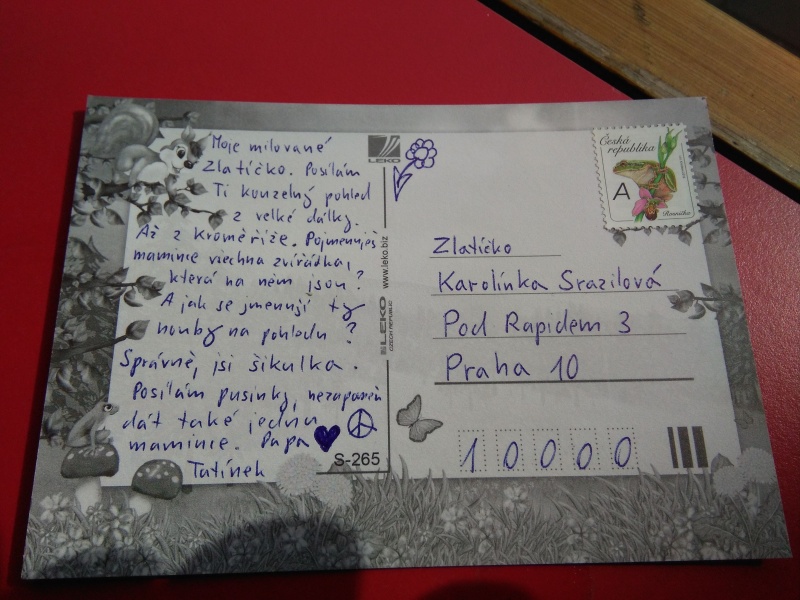 Moje milované
Zlatíčko. Posílám
Ti kouzelný pohled
z velké dálky.
Až z Kroměříže. Pojmenuješ
mamince všechna zvířátka,
která na něm jsou?
A jak se jmenují ty
houby na pohledu?
Správně, jsi šikulka.
Posílám pusinky, nezapomeň
dát také jednu
mamince. Papa
Tatínek
LEKO
www.leko.biz
LEKO
CZECH REPUBLIC
S-265
Česká
republika
A
Rosnička
Zlatíčko
Karolínka Srazilová
Pod Rapidem 3
Praha 10
10000